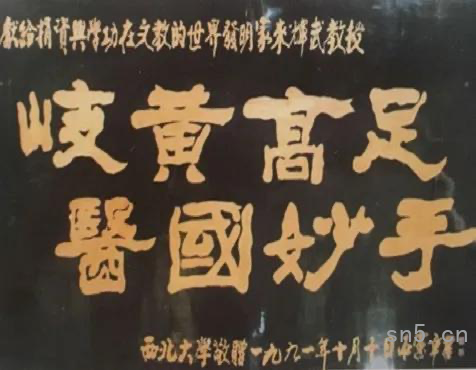 獻給捐資興學功在文教的世界發明家來輝武教授
岐黃髙足
醫國妙手
西北大學敬贈一九九一年十月十日
sn5.cn